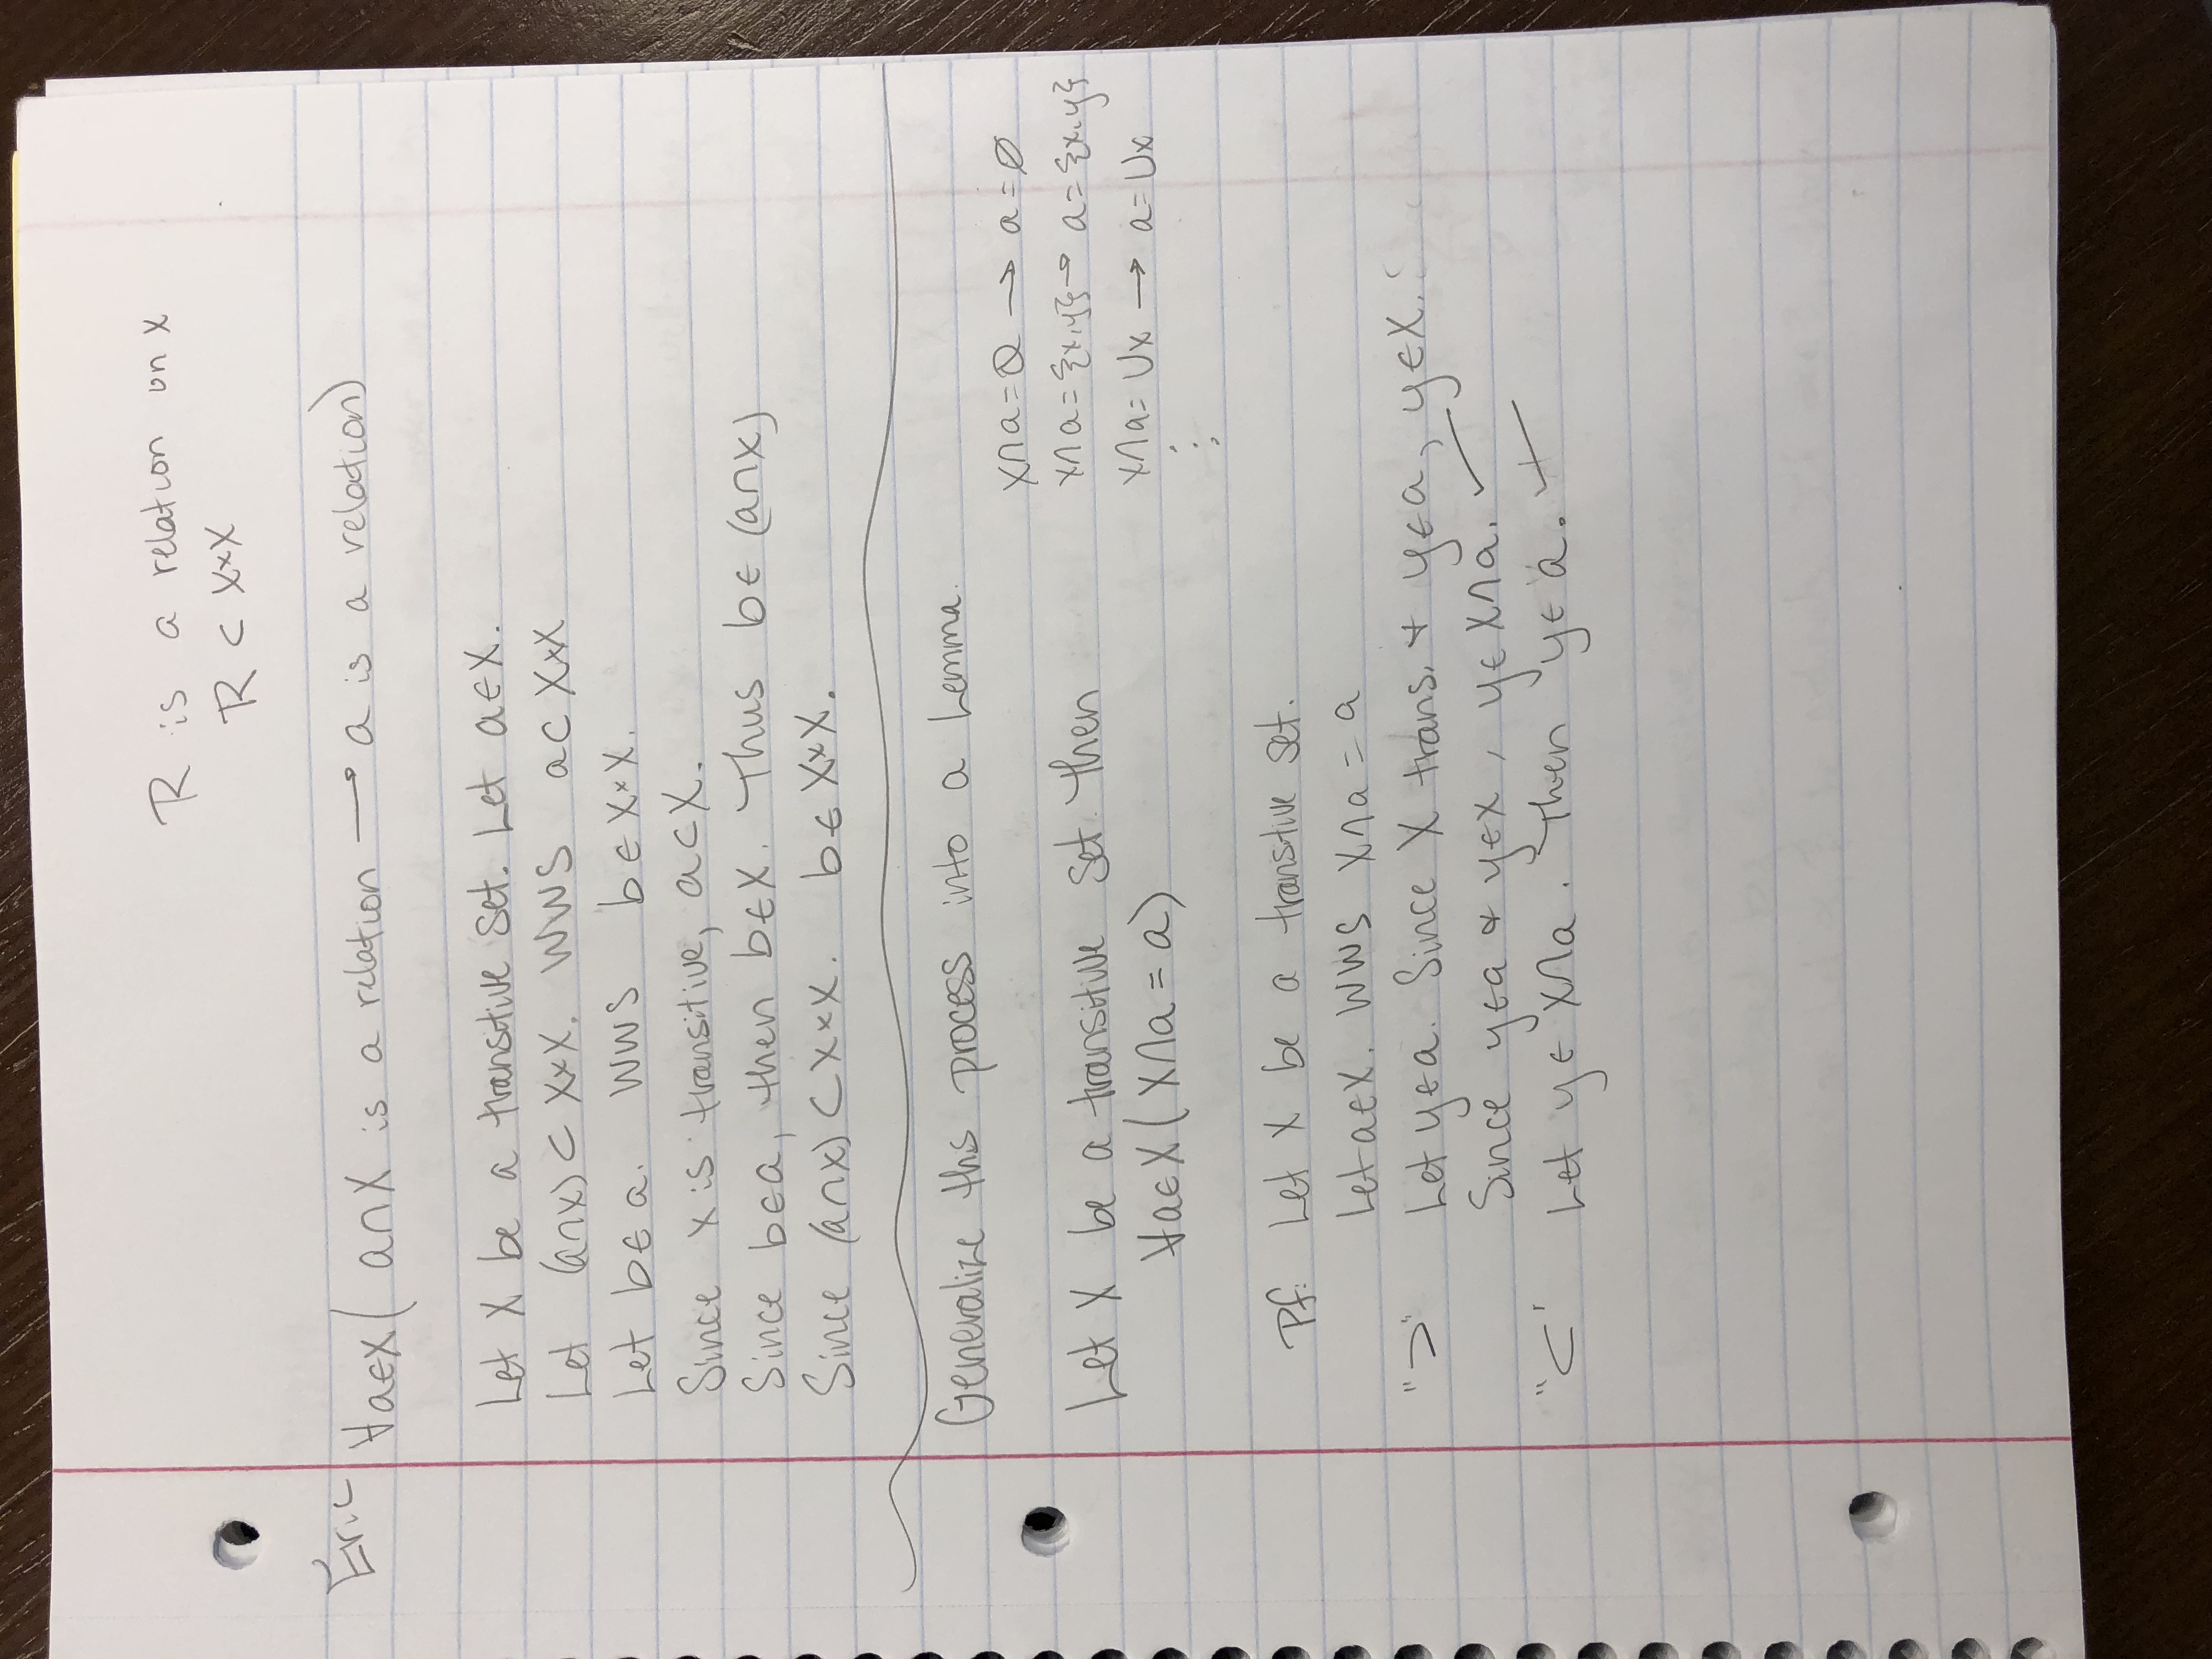 R is a relation on X
R ⊂ X×X
Eric
∀a∈X( a∩X is a relation → a is a relation)
Let X be a transitive set. Let a∈X.
Let (a∩X) ⊂ X×X. WWS a⊂X×X
Let b∈a. WWS b∈X×X.
Since X is transitive, a⊂X.
Since b∈a, then b∈X. Thus b∈(a∩X)
Since (a∩X)⊂X×X. b∈X×X.
Generalize this process into a Lemma.
X∩a=∅ → a=∅
X∩a={x,y}→ a={x,y}
X∩a=∪x → a=∪x
⋮
Let X be a transitive set. Then
∀a∈X(X∩a=a)
Pf: Let X be a transitive set.
Let a∈X. WWS X∩a=a
"⊃" Let y∈a. Since X trans. + y∈a, y∈X.
Since y∈a & y∈X, y∈X∩a. ✓
"⊂" Let y∈X∩a. Then y∈a. ✓